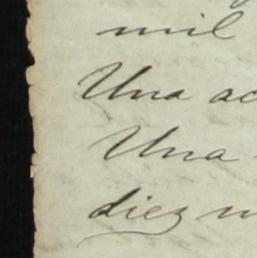 mil
Una ac
Una
diez